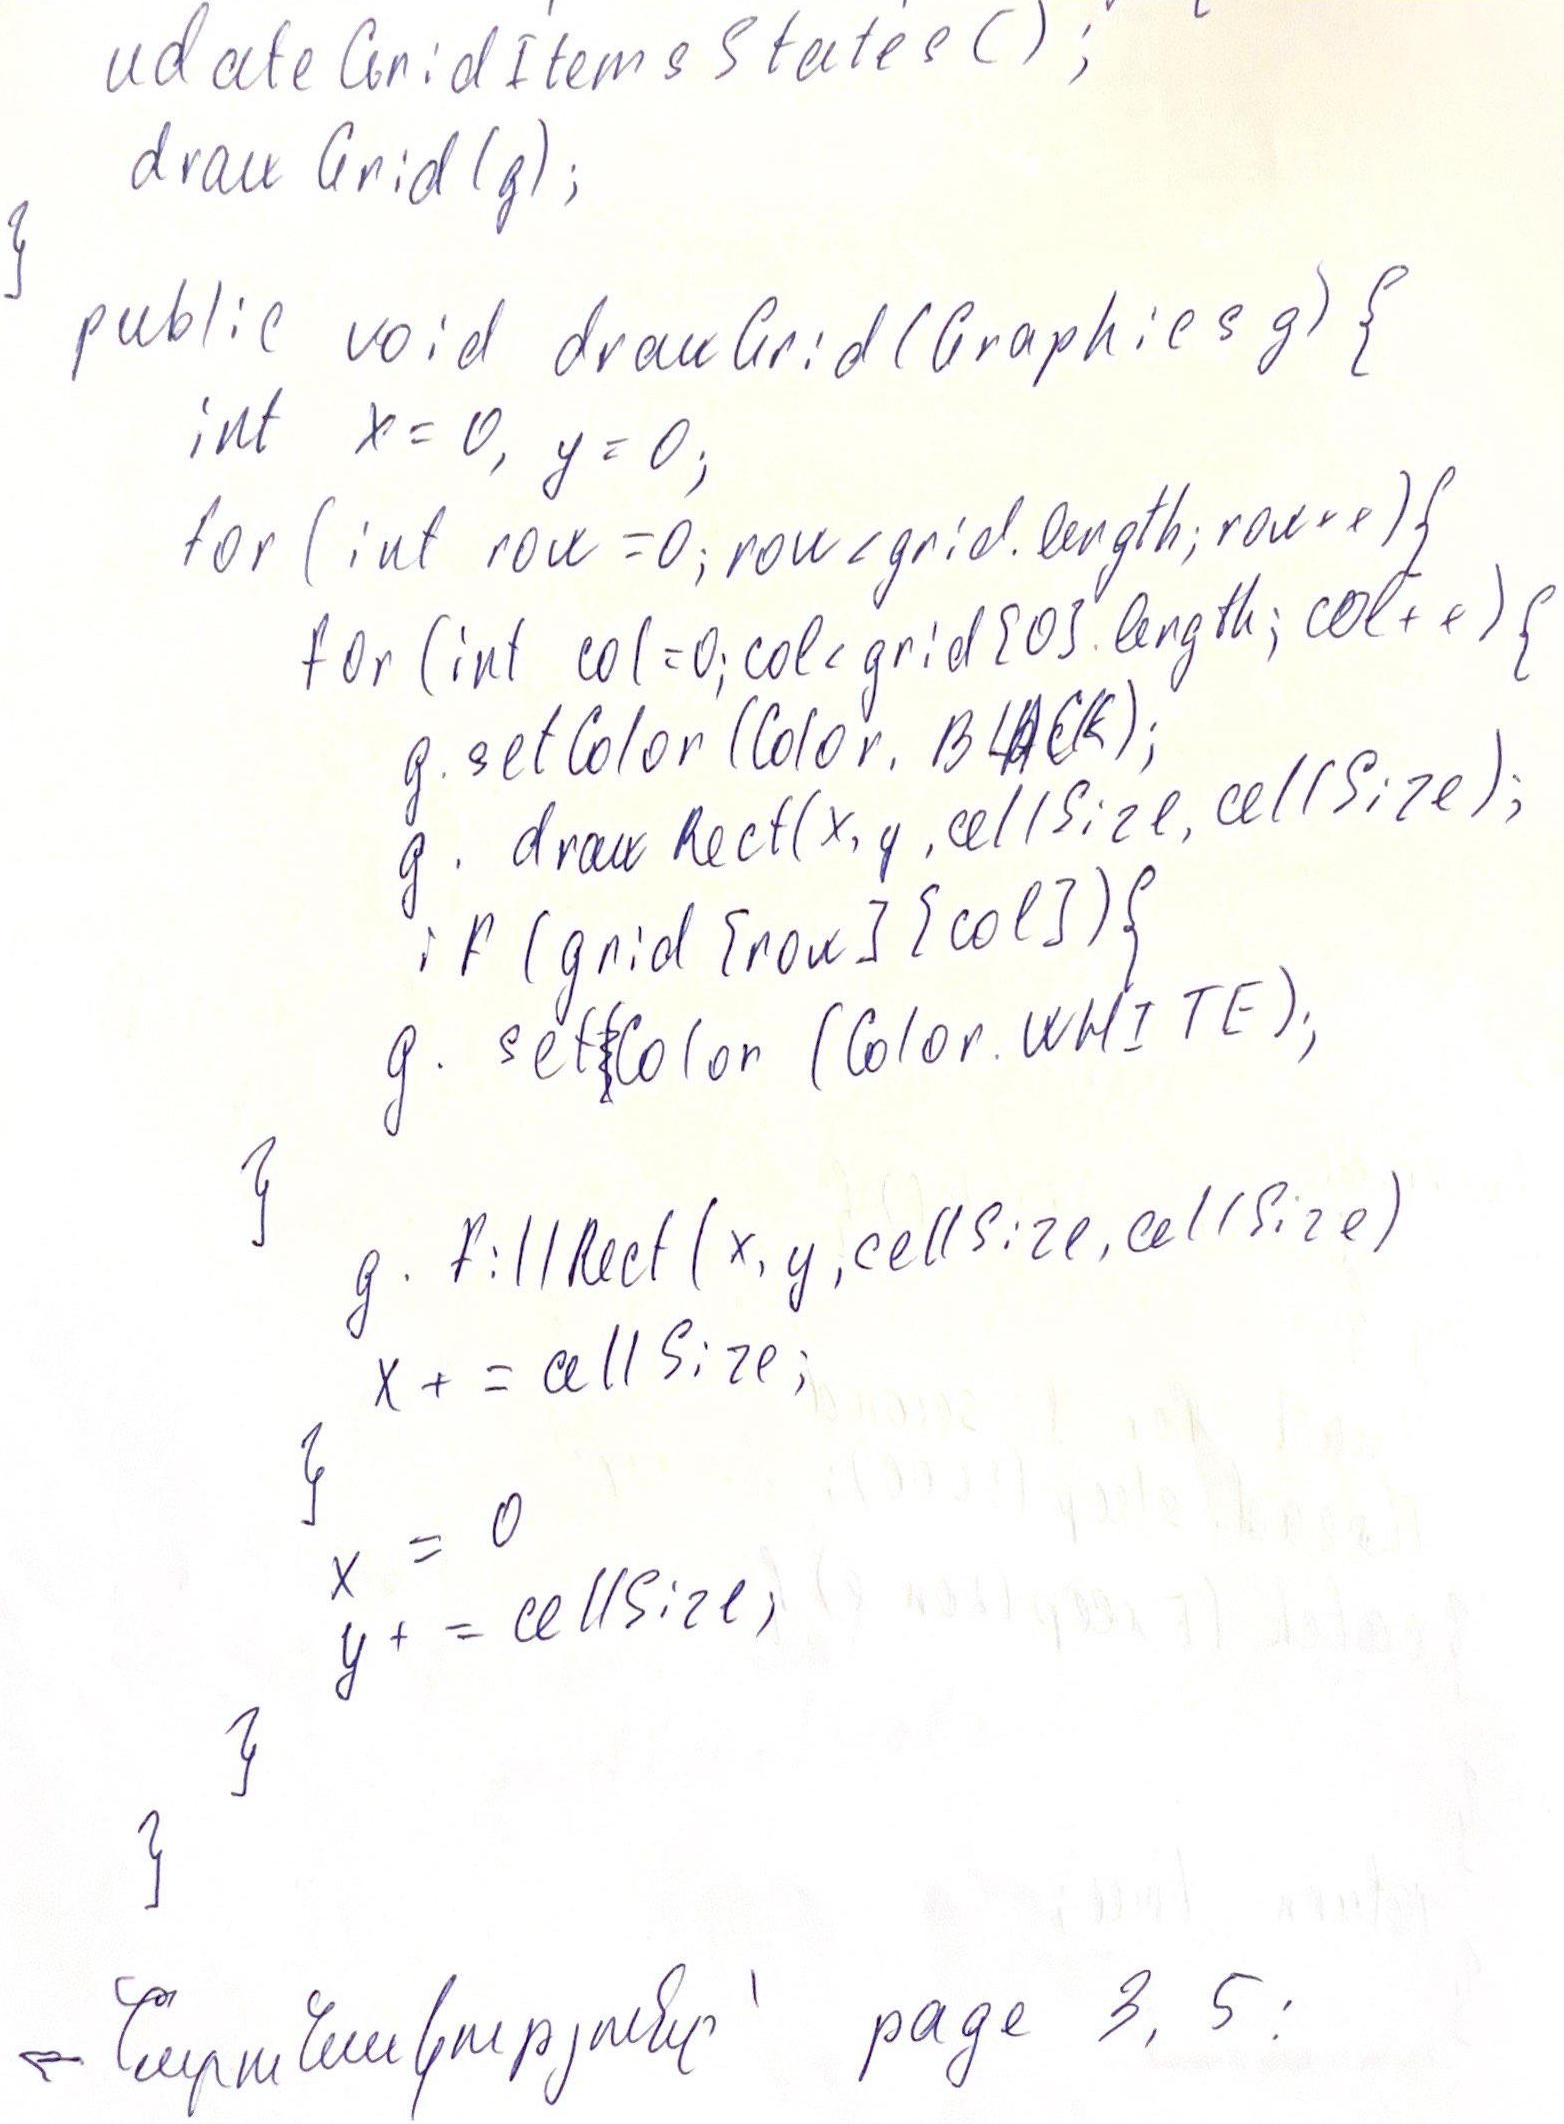 udateGridItemsStates();
drawGrid(g);
}
public void drawGrid(Graphics g){
int x=0, y=0;
for(int row=0;row<grid.length;row++){
for(int col=0;col<grid[0].length;col++){
g.setColor(Color.BLACK);
g.drawRect(x,y,cellSize,cellSize);
if(grid[row][col]){
g.setColor(Color.WHITE);
}
g.fillRect(x,y,cellSize,cellSize)
x+=cellSize;
}
x = 0
y+=cellSize;
}
}
page 3, 5: